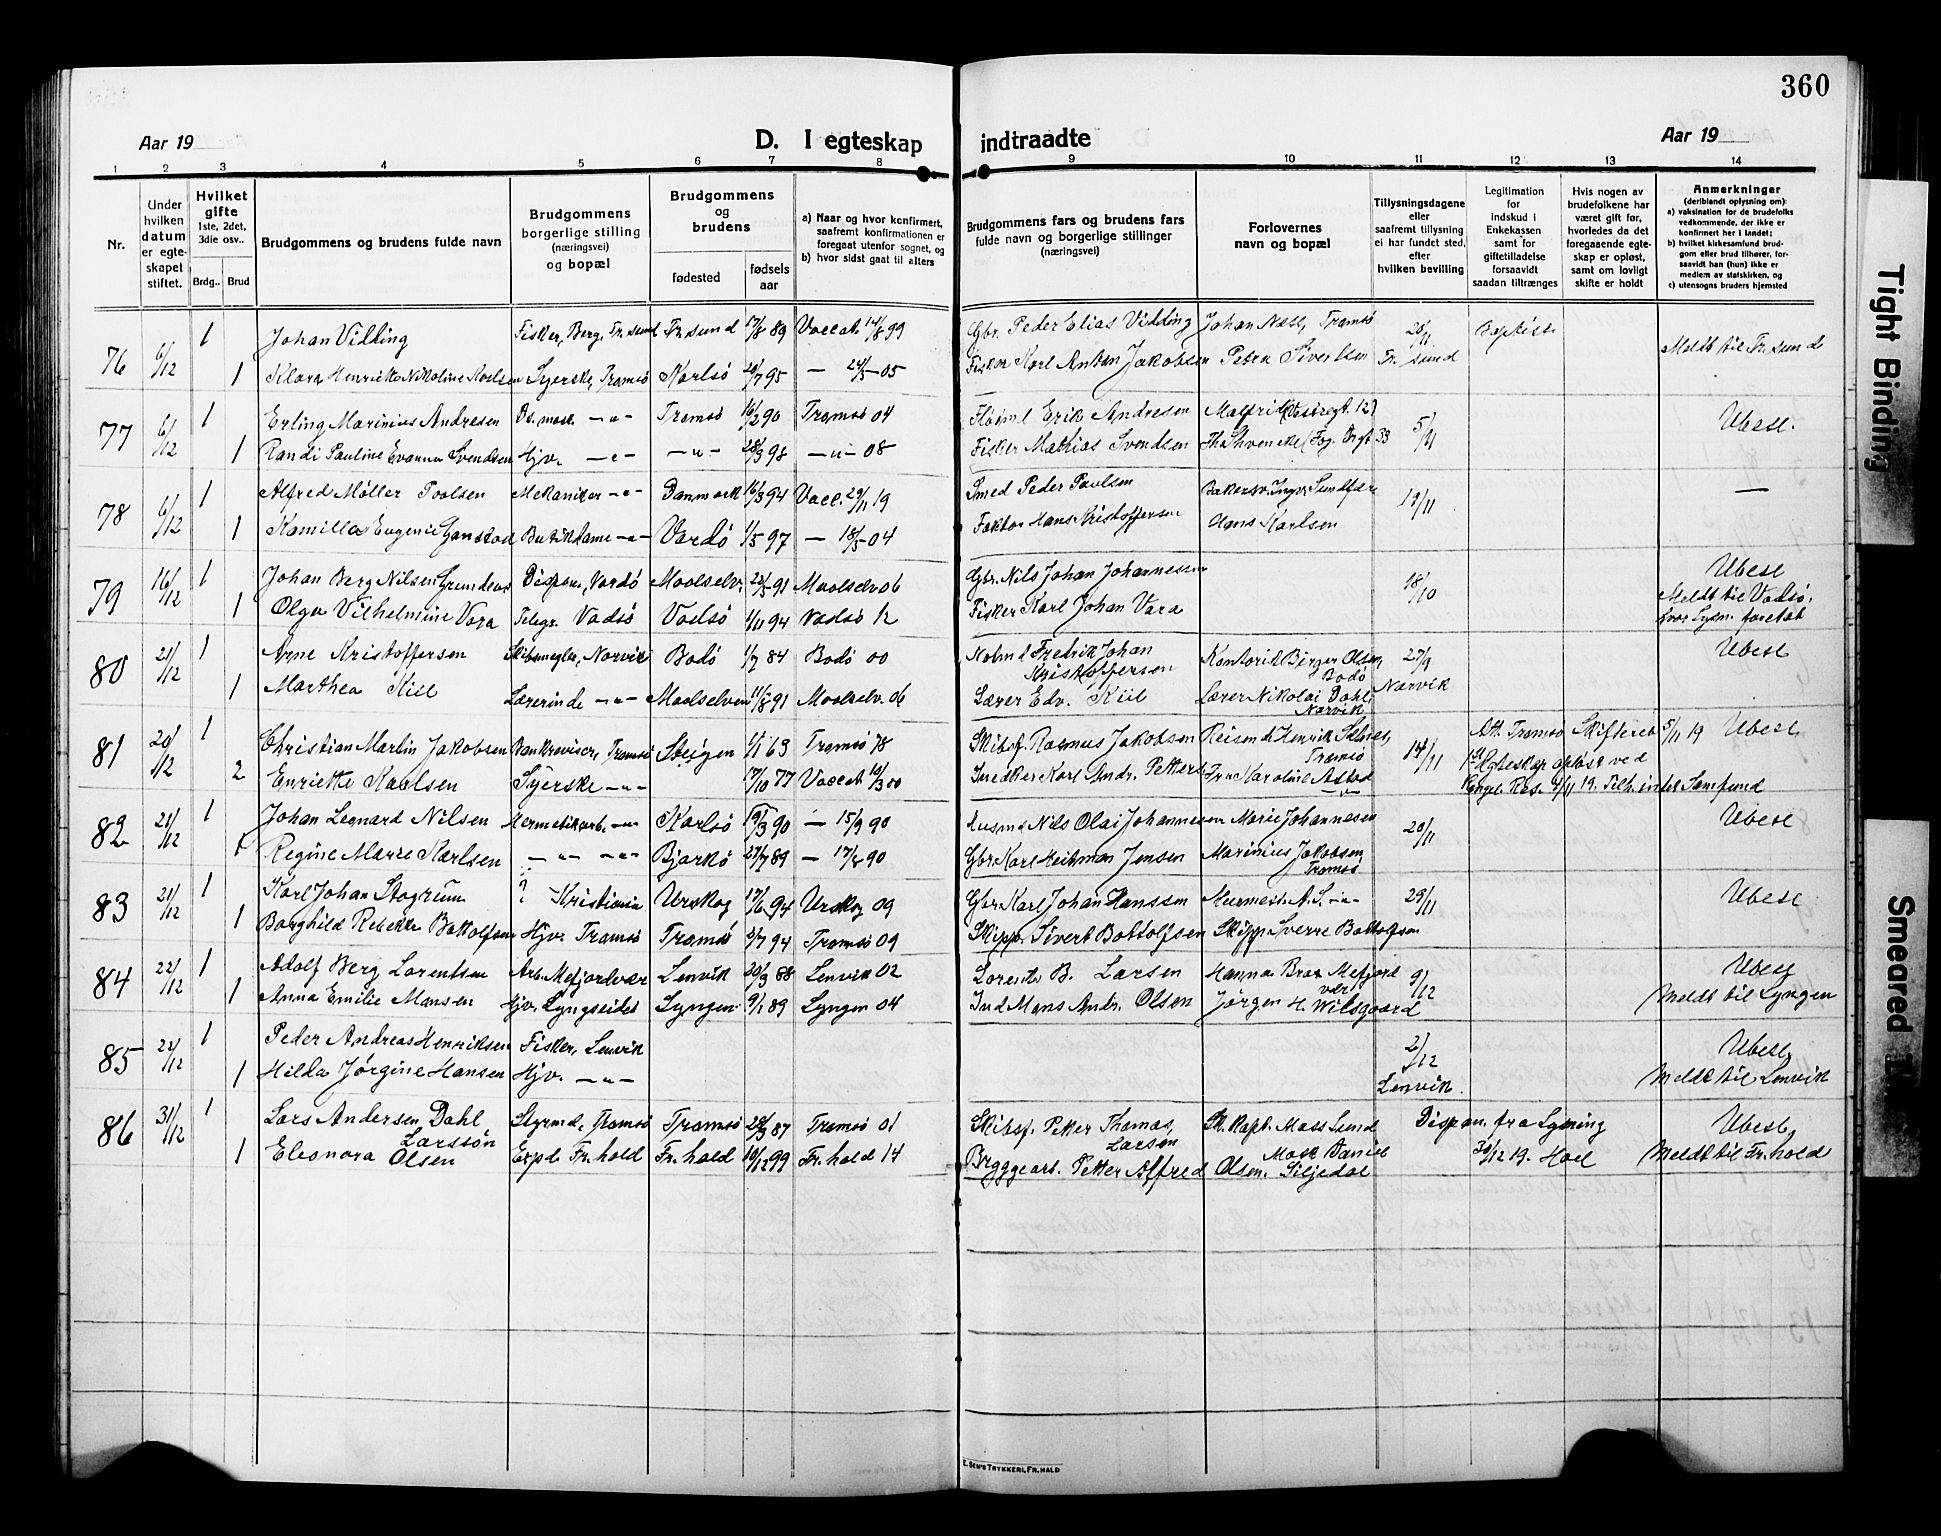 360
Aar 19
D. I egteskap indtraadte
Aar 19
1 2 3 4 5 6 7 8 9 10 11 12 13 14
Nr.
Under hvilken datum er egteskapet stiftet.
Hvilket gifte 1ste, 2det, 3die osv..
Brdg.. Brud
Brudgommens og brudens fulde navn
Brudgommens borgerlige stilling (næringsvei) og bopæl
Brudgommens og brudens
fødested
fødsels aar
a) Naar og hvor konfirmert, saafremt konfirmationen er foregaat utenfor sognet, og
b) hvor sidst gaat til alters
Brudgommens fars og brudens fars fulde navn og borgerlige stillinger (næringsvei)
Forlovernes navn og bopæl
Tillysningsdagene eller saafremt tillysning ei har fundet sted, efter hvilken bevilling
Legitimation for indskud i Enkekassen samt for giftetilladelse forsaavidt saadan tiltrænges
Hvis nogen av brudefolkene har været gift før, hvorledes da det foregaaende egteskap er opløst, samt om lovligt skifte er holdt
Anmerkninger (deriblandt oplysning om):
a) vaksination for de brudefolks vedkommende, der ikke er konfirmert her i landet;
b) hvilket kirkesamfund brudgom eller brud tilhører, forsaavidt han (hun) ikke er medlem av statskirken, og
c) utensogns bruders hjemsted
76 6/12 1 Johan Vidding Fisker, Berg, Tr.sund Tr.sund 17/8 89 Vaccat. 14/8 99 Gbr. Peder Elias Vidding Johan Næss, Tromsö Baptist Meldt til Tr.sund
1 Klara Henrikke Nikoline Syerske, Tromsö Karlsö 95 — 24/5 — 05 Fisker Karl Anton Jakobsen Petra Sivertsen Tr. sund
77 6/12 1 Erling Marinius Andresen — " — Tromsö 16/2 90 Tromsö 04 Erik Andresen 5/11 Ubesl.
1 Randi Pauline Svendsen Hjv. — " — — " — 28/3 98 — " — 08 Fisker Mathias Svendsen
78 6/12 1 Alfred Møller Poolsen Mekaniker — " — Danmark 16/3 94 Vacc. 29/11 19 Smed Peder Paulsen —
1 Kamilla Eugenie Butikdame — " — Vardö 1/5 97 — 18/5 — 04 Faktor Hans Kristoffersen Hans Karlsen
79 16/12 1 Johan Berg Nilsen Dispon., Vardö Maalselv. 91 Maalselv 06 Gbr. Nils Johan Johannesen 18/10 Ubesl
Meldt til Vadsö,
1 Olga Vilhelmine Vara Telegr. Vadsö Vadsö 1/11 94 Vadsö 12 Fisker Karl Johan Vara hvor Lysn. foretat
80 21/12 1 Arne Kristoffersen Skibsmegler, Narvik Bodö 1/7 84 Bodö 00 Fredrik Johan Kristoffersen Kontorist Birger Olsen, Bodö 27/9 Narvik Ubesl
1 Marthea Kiil Lærerinde — " — Maalselven 11/8 91 Maalselv. 06 Lærer Edv. Kiil Lærer Nikolai Dahl, Narvik
81 20/12 1 Christian Martin Jakobsen Tromsö Steigen 1/1 63 Tromsö 78 Skibsf. Rasmus Jakobsen Reisende Henrik Tromsö 14/11 Att. Tromsö Skifteret 5/11 19 Ubesl.
2 Enriette Karlsen Syerske — " — 17/10 77 Vaccat. 10/3 00 Snedker Karl Andr. Fru Karoline 1st Egteskap opløst ved Kongel. Res. 4/11 19.
82 21/12 1 Johan Leonard Nilsen Hermetikarb. — " — Karlsö 19/3 90 — 15/9 90 Husmd Nils Olai Johannesen Marie Johannesen 20/11 Ubesl
1 Regine Marie Karlsen — " — — " — Bjarkö 27/7 89 — 17/8 90 Gbr. Karl Heitman Jensen Marinius Jakobsen, Tromsö
83 21/12 1 Karl Johan ? Kristiania Urskog 17/6 94 Urskog 09 Gbr. Karl Johan Hanssen 29/11 Ubesl
1 Borghild Rebekka Bottolfsen Hjv. Tromsö Tromsö 2/7 94 Tromsö 09 Skipp. Sivert Bottolfsen Skipp Sverre Bottolfsen
84 22/12 1 Adolf Berg Lorentsen Arb. Mefjordvær Lenvik 20/3 88 Lenvik 02 Lorents B. Larsen Hanna Mefjord vær 9/12 Ubesl
1 Anna Emilie Hansen Hjv. Lyngseidet Lyngen 9/1 89 Lyngen 04 Ind Mons Andr. Olsen Jørgen H. Wilsgaard Meldt til Lyngen
85 22/12 1 Peder Andreas Henriksen Fisker, Lenvik 2/12 Ubesl.
1 Hilda Jørgine Hansen Hjv. — " — Lenvik. Meldt til Lenvik
86 31/12 1 Lars Andersen Dahl Larssön Styrmd, Tromsö Tromsö 28/3 87 Tromsö 01 Skibsf. Petter Thomas Larsen Sk. Kapt. Moss Lund Dispen. fra Lysning Ubesl.
1 Eleonora Olsen Expd. Fr.hald Fr.hald 10/12 99 Fr.hald 14 Bryggearb. Petter Alfred Olsen. Mosk Daniel Siljedal 30/12 19. Hoel Meldt til Fr.hald
E. Sem's Trykkeri, Fr.hald
Tight Binding
Smeared